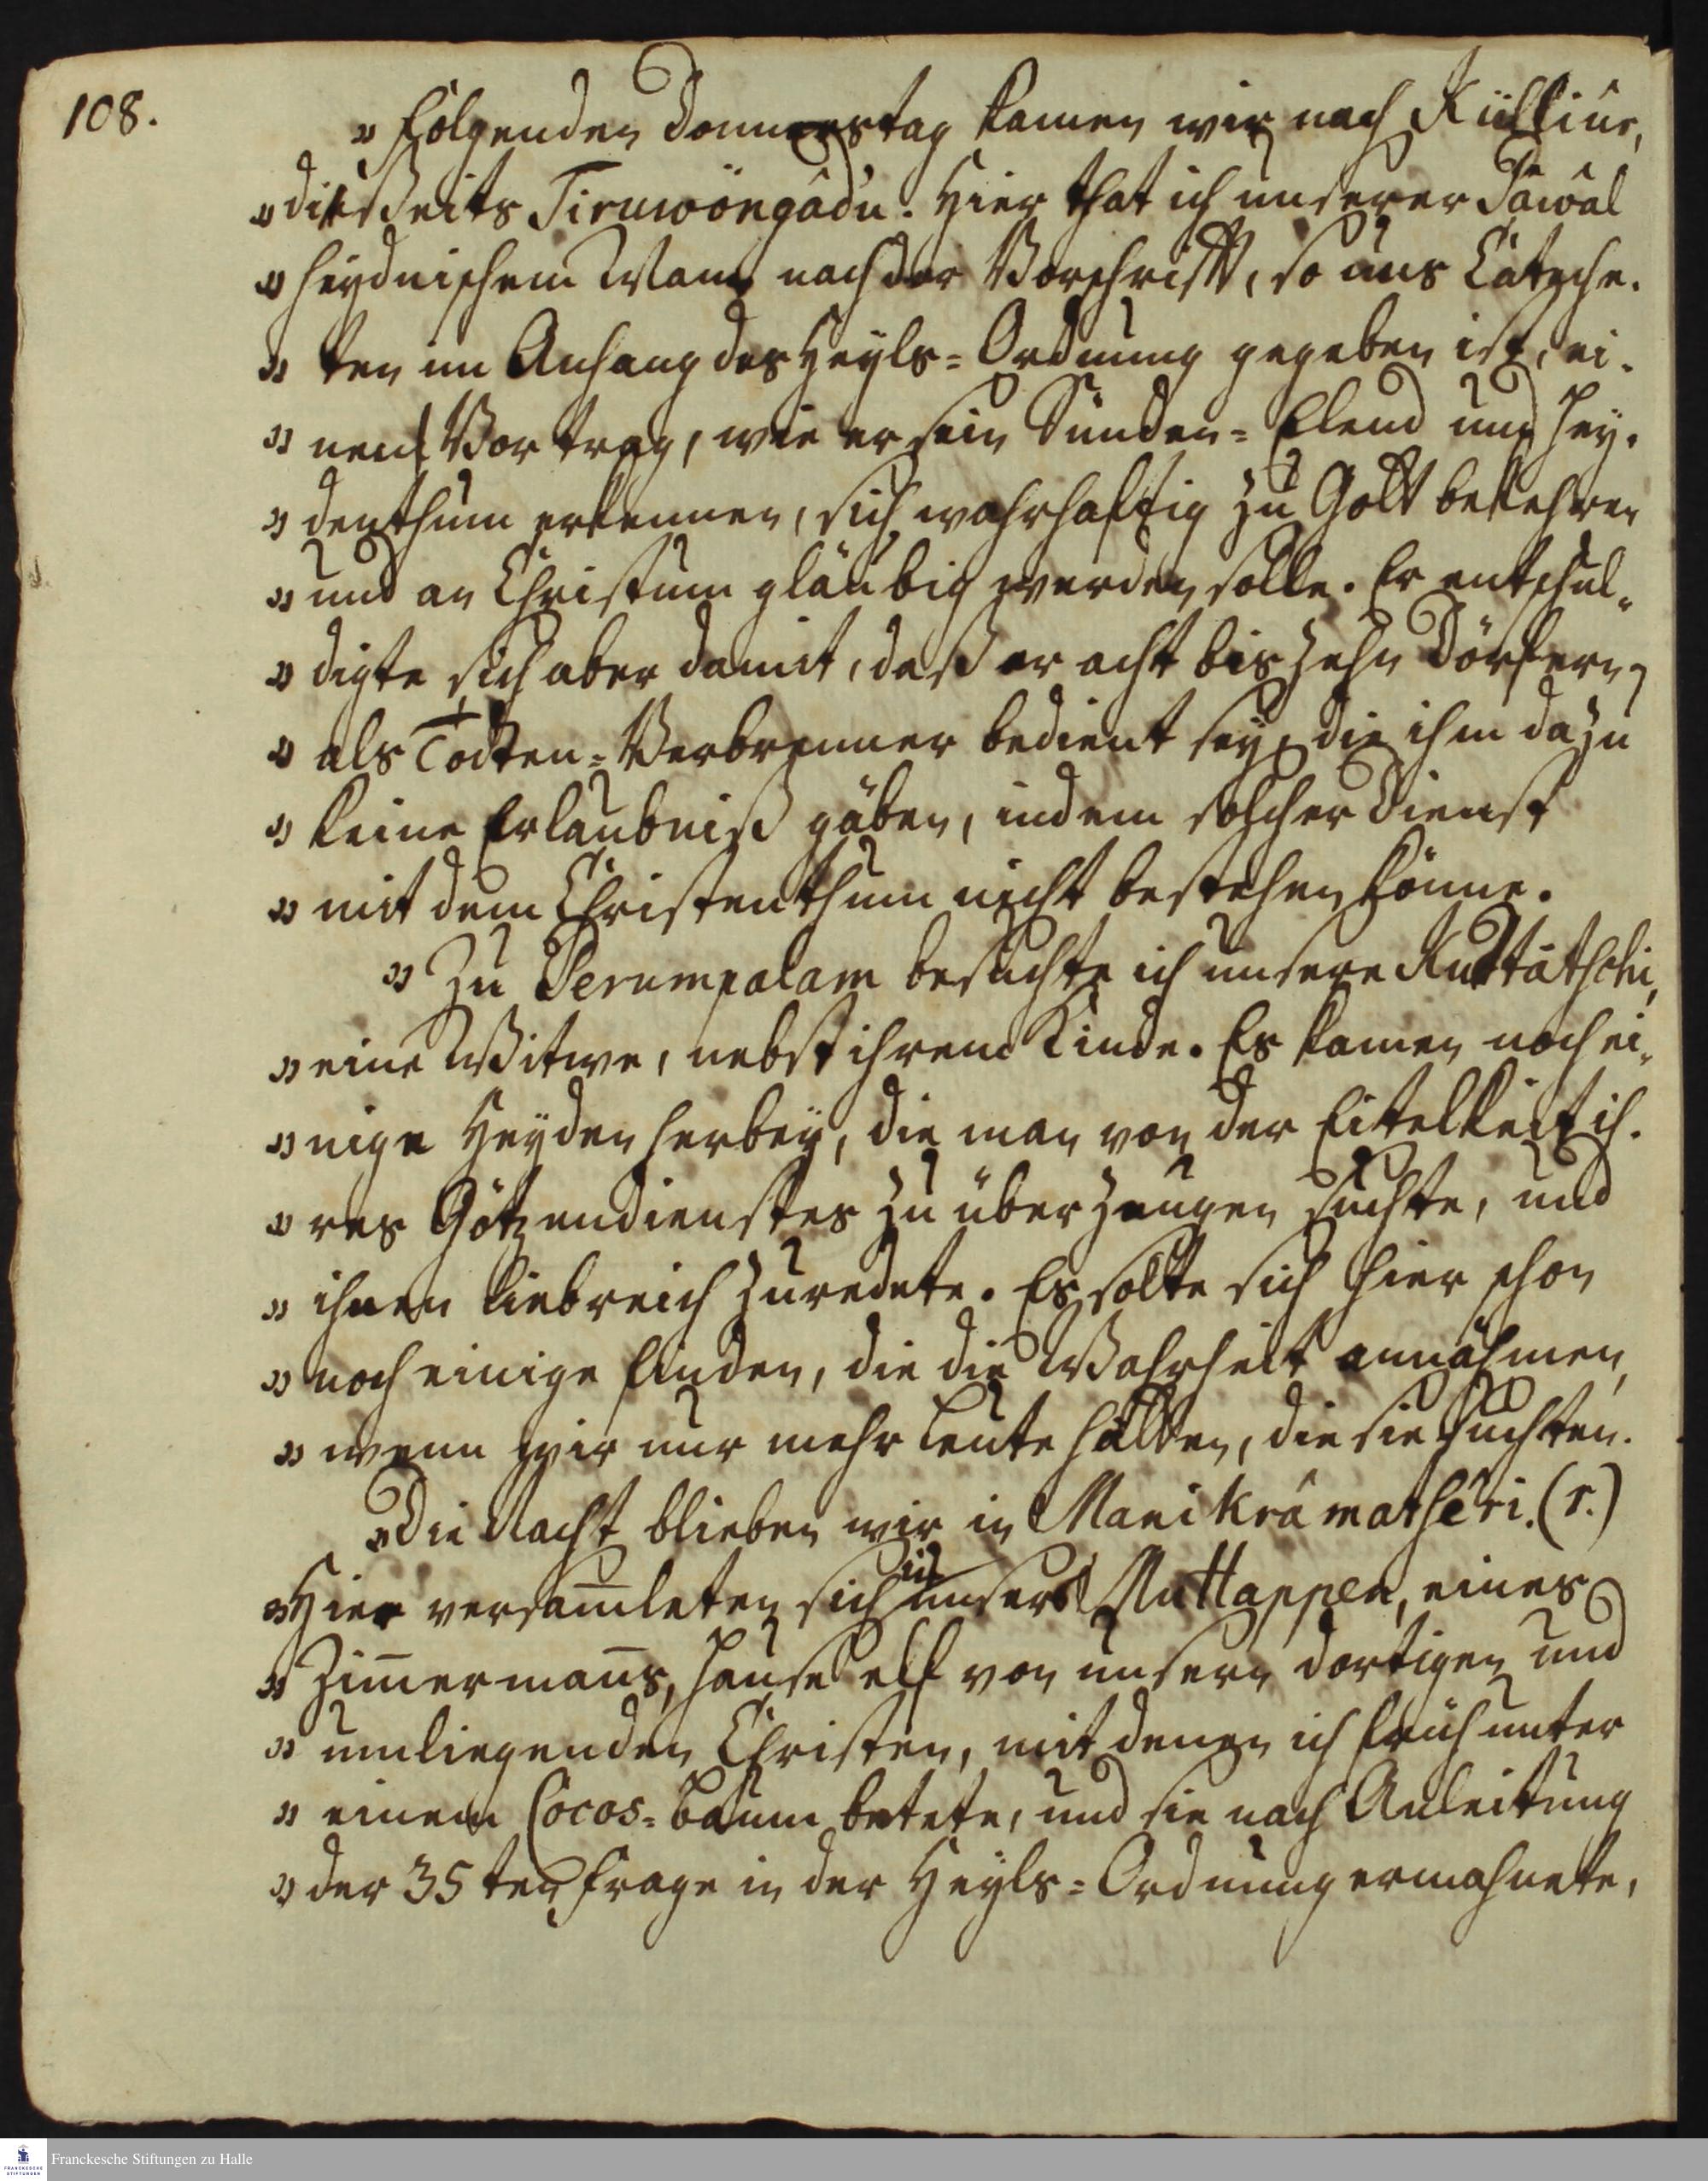 108.
„ folgenden Donnerstag kamen wir nach Küllîur,
„ dißseits Tiruwöngâdu. Hier that ich unserer Pâwâl
„ heydnischem Mann nach der Vorschrifft, so uns Cateche-
„ ten im Anhang der Heyls-Ordnung gegeben ist, ei-
„ nen Vortrag, wie er sein Sünden-Elend und Hey-
„ denthum erkennen, sich wahrhafftig zu Gott bekehren
„ und an Christum gläubig werden solle. Er entschul-
„ digte sich aber damit, daß er acht bis zehn Dörfern
„ als Todten-Verbrenner bedient sey, die ihm dazu
„ keine Erlaubniß gäben, indem solcher Dienst
„ mit dem Christenthum nicht bestehen könne.
„ Zu Perumpalam besuchte ich unsere Kuttâtschi,
„ eine Witwe, nebst ihrem Kinde. Es kamen noch ei-
„ nige Heyden herbey, die man von der Eitelkeit ih-
„ res Götzendienstes zu überzeugen suchte, und
„ ihnen liebreich zuredete. Es solte sich hier schon
„ noch einige finden, die die Wahrheit annähmen,
„ wenn wir nur mehr Leute hätten, die sie suchten.
„ Die Nacht blieben wir in Manikrâmathêri. (r.)
„ Hier versam̅leten sich in unsers Muttappen, eines
„ Zim̅erman̅s, Hause elf von unsern dortigen und
„ umliegenden Christen, mit denen ich früh unter
„ einem Cocos-Baum betete, und sie nach Anleitung
„ der 35ten Frage in der Heyls-Ordnung ermahnete,
Franckesche Stiftungen zu Halle